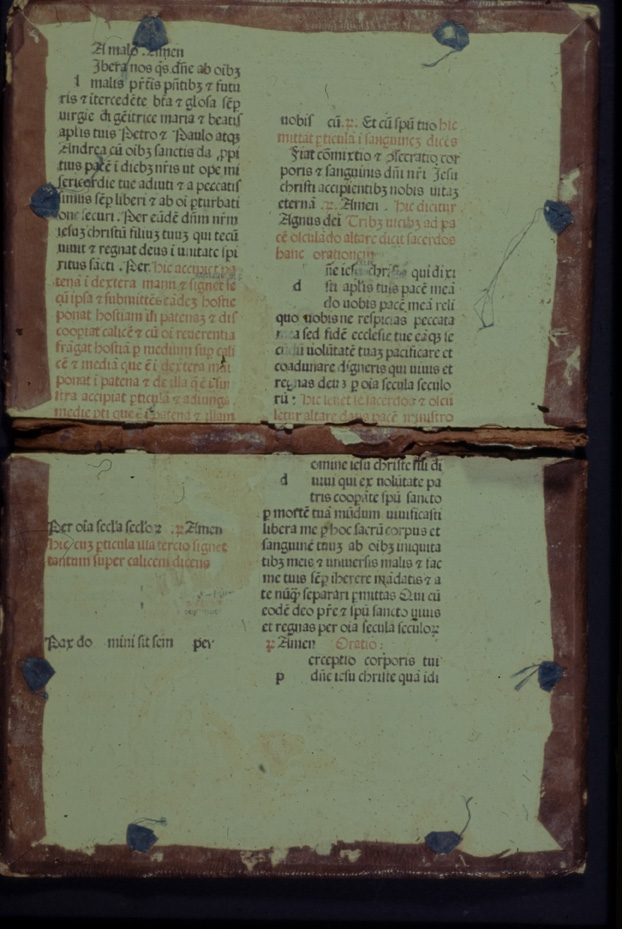 A malo. Amen
Jbera nos q̄s dn̄e ab oībꝫ
l malis pr̄tis pn̄tibꝫ ⁊ futu
ris ⁊ itercedēte bt̄a ⁊ gl̄osa sēp
virgie di gēitrice maria ⁊ beatis
apl̄is tuis Petro ⁊ Paulo atqꝫ
Andrea cū oībꝫ sanctis da ꝓpi
tius pacē i diebꝫ nr̄is ut ope mi
sericordie tue adiuti ⁊ a peccatis
simus sēp liberi ⁊ ab oī ꝑturbati
one securi. Per eūdē dn̄m nr̄m
iesuꝫ christū filiuꝫ tuuꝫ qui tecū
uiuit ⁊ regnat deus i unitate spi
ritus sācti. Per hic accipit pa
tenā i dextera manu ⁊ signet se
cū ipsa ⁊ submittēs eādeꝫ hostie
ponat hostiam ī patenaꝫ ⁊ dis
coopiat calicē ⁊ cū oī reuerentia
frāgat hostiā ꝑ medium sup cali
cē ⁊ mediā que ē i dextera ma
ponat i patena ⁊ de illa q̄ ē i sini
stra accipiat ꝑticulā ⁊ adiungat
medie pti que ē i patena ⁊ illam
nobis cū. ꝶ. Et cū spū tuo hic
mittat ꝑticulā i sanguineꝫ dicēs
Fiat cōmixtio ⁊ ꝯsecratio cor
poris ⁊ sanguinis dn̄i nr̄i Jesu
christi accipientibꝫ nobis uitaꝫ
eternā. ꝶ. Amen. hic dicitur
Agnus dei Tribꝫ uicibꝫ ad pa
cē osculādo altare dicit sacerdos
hanc orationem
n̄e iesu christe qui dixi
d sti apl̄is tuis pacē meā
do uobis pacē meā reli
quo uobis ne respicias peccata
mea sed fidē ecclesie tue eāqꝫ se
cūdū uolūtatē tuaꝫ pacificare et
coadunare digneris qui uiuis et
regnas deus ꝑ oīa secula seculo
rū: hic leuet se sacerdos ⁊ oscu
letur altare dans pacē ministro
Per oīa secl̄a secl̄oꝝ. ꝶ Amen
hic cuꝫ ꝑticula illa tercio signet
tantum super calicem dicens
Pax do mini sit sem per
omine iesu christe fili di
d uiui qui ex uolūtate pa
tris coopāte spū sancto
ꝑ mortē tuā mūdum uiuificasti
libera me ꝑ hoc sacrū corpus et
sanguinē tuuꝫ ab oībꝫ iniquita
tibꝫ meis ⁊ uniuersis malis ⁊ fac
me tuis sēp iherere mādatis ⁊ a
te nūqꝫ separari ꝑmittas Qui cū
eodē deo pr̄e ⁊ spū sancto uiuis
et regnas per oīa secula seculoꝝ
ꝶ Amen Oratio:
erceptio corporis tui
p dn̄e iesu christe quā idi